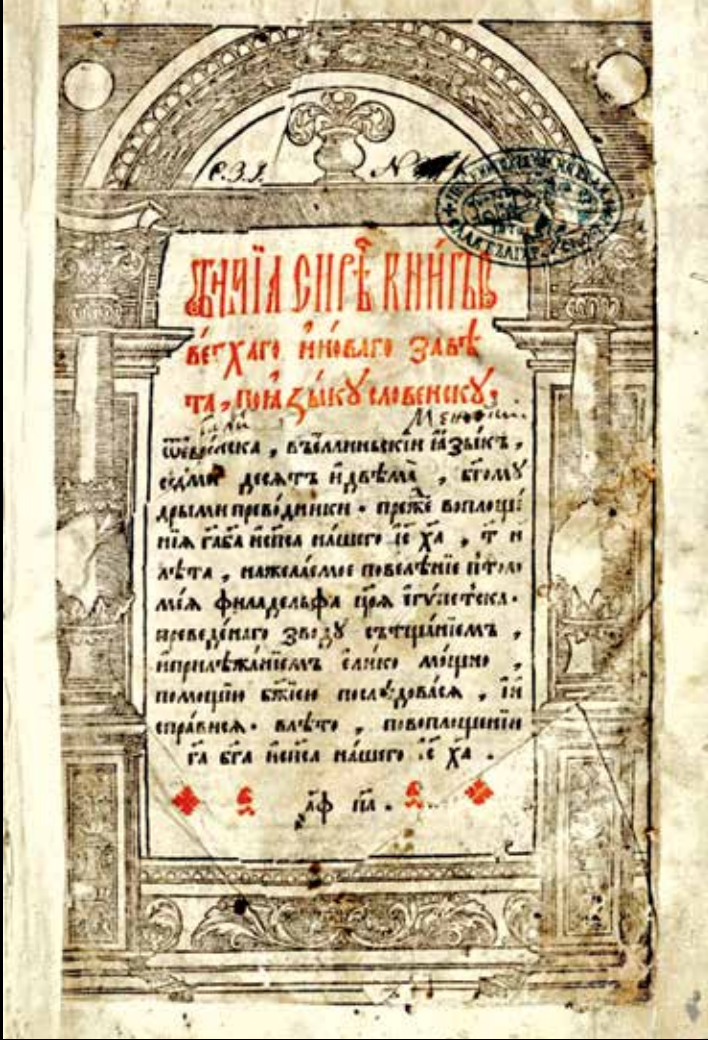 Е.З.I. N
БИБЛІА СИРѢ КНИГЫ
ВЕ́ТХАГО И҆НО́ВАГО ЗАВѢ
ТА, ПОꙖ҆ЗЫ́КꙊ СЛОВЕНСКꙊ,
ѿевре́йска , въе́ллиньскіи ꙗ҆зы́къ ,
се́дмиꙋ десѧтъ и҆двѣмѧ̀ , бг҃омꙋ́
дрыми прево́дники · пре́ж҇е воплоще́
нїѧ г҃а бг҃а и҆сп҃са на́шего і҆с҃ ха҃ , т҃ и
лѣ́та , нажела́емое повелѣ́нїе пъто́ло
ме́ѧ филаде́льфа цр҃ѧ є҆гѵ́петска ·
преведе́наго зво́дꙋ сътща́нїемъ ,
и҆прилѣжа́нїемъ є҆ли́ко мо́щно ,
по́мощїю бж҃їею послѣ́довасѧ , и҆и
спра́висѧ · влѣ́то , повоплоще́нїи
г҃а бг҃а и҆сп҃са на́шего і҆с҃ ха҃ ·
а҂фпа ·